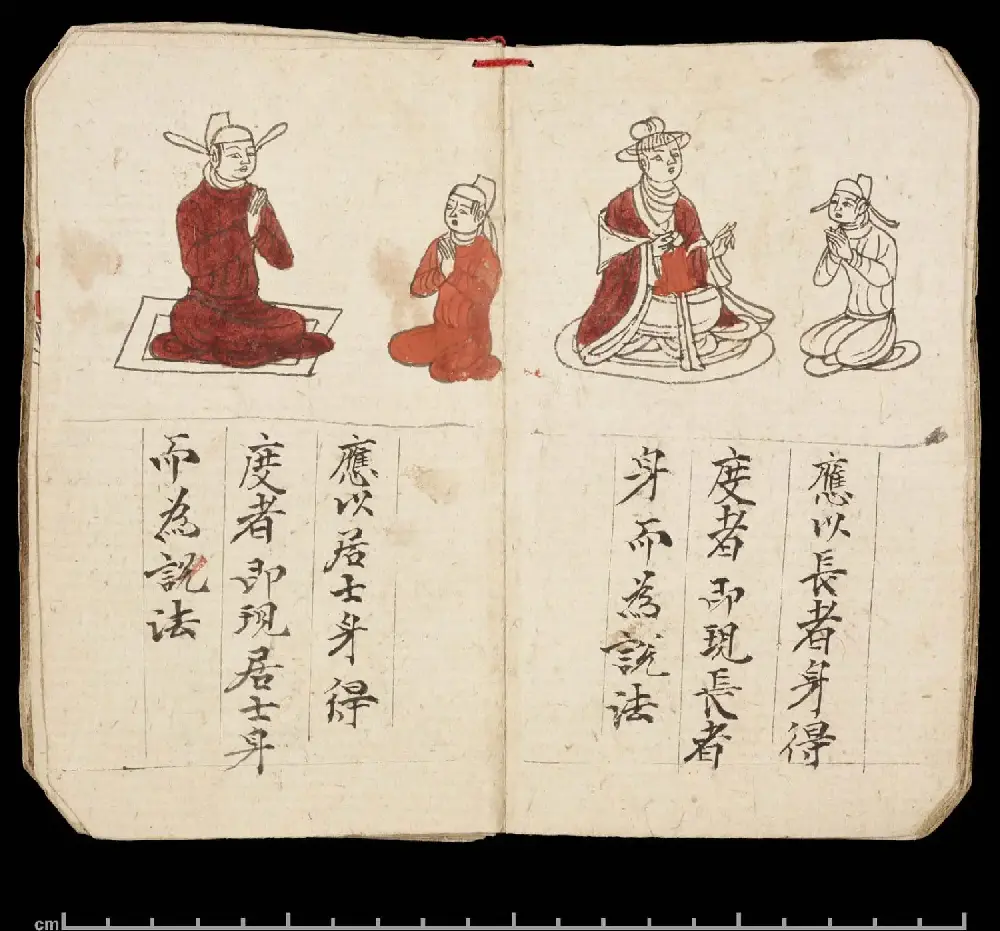 應以長者身得
度者即現長者
身而為説法
應以居士身得
度者即現居士身
而為説法
cm